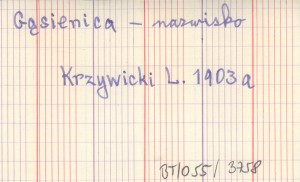 Gąsienica – nazwisko
Krzywicki L. 1903a
BT/055/3758